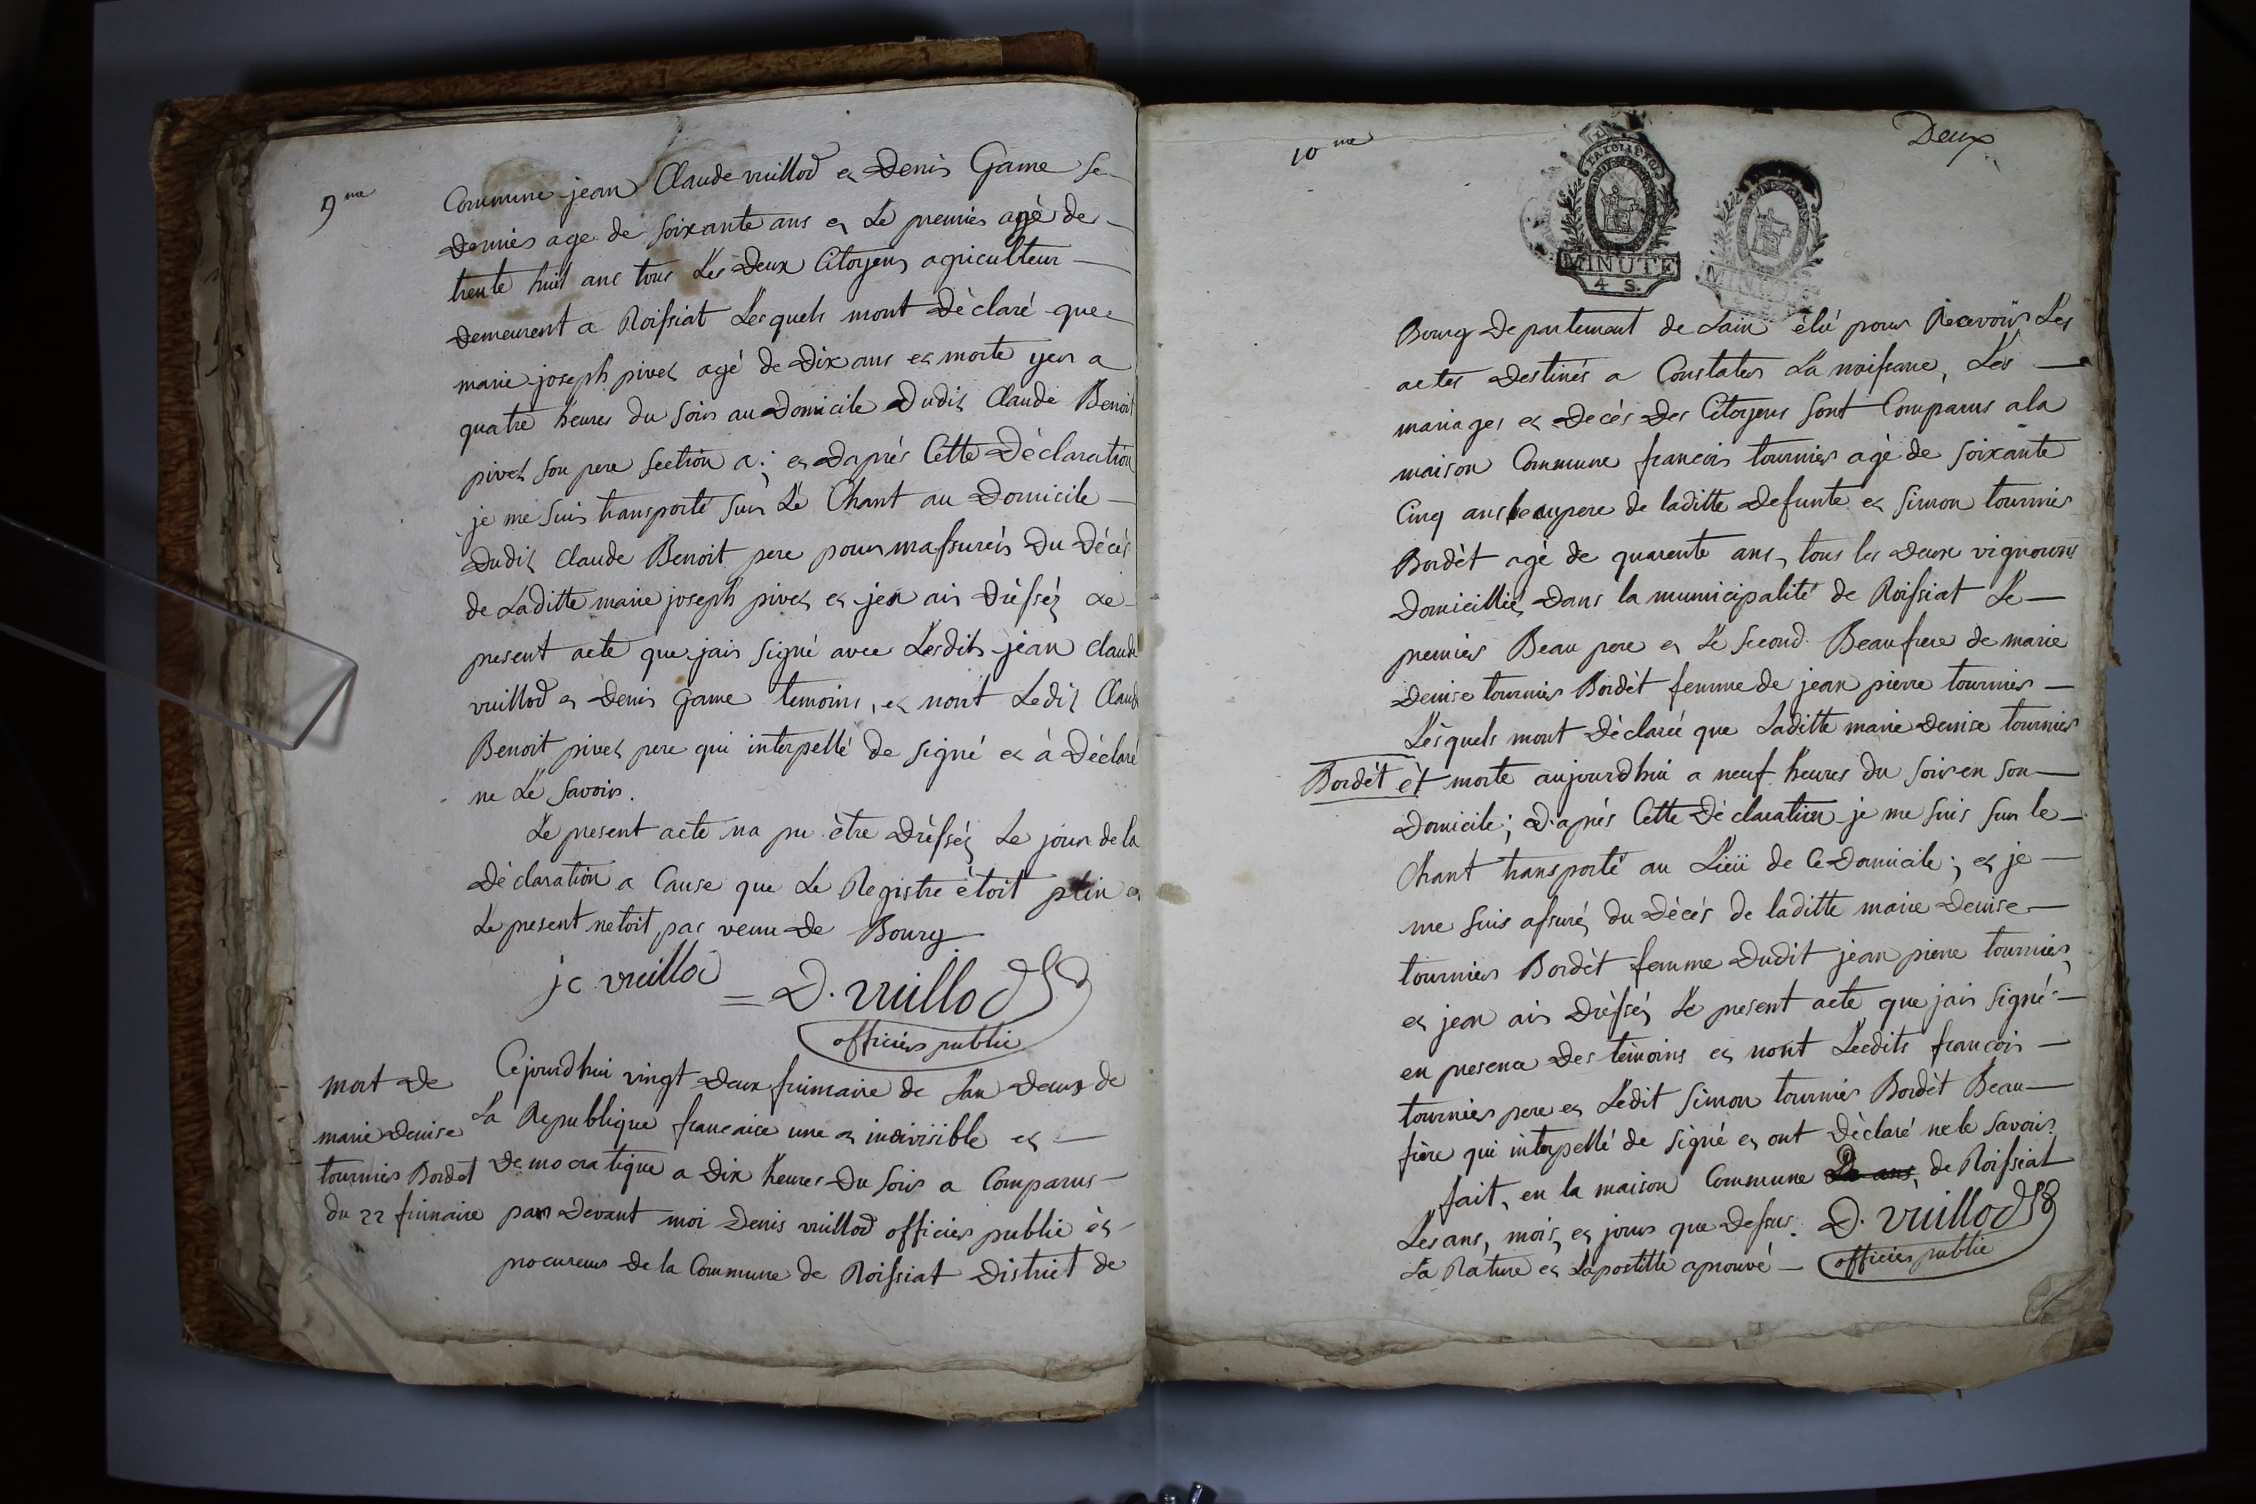 9me
Commune jean Claude vuillod et Denis Game Se
Dernier age de soixante ans et Le premier agé de
trente huit ans tous Les Deux Citoyens agriculteur
Demeurent a Roissiat Lesquels mont Dèclaré que
marie joseph pivet agé de Dix ans et morte yer a
quatre heures du soir au Domicile Dudit Claude Benoit
pivet son pere Section a; et Daprés Cette Dèclaration
je me suis transporté sur Le Chant au Domicile
Dudit Claude Benoit pere pour massurér Du Décés
de Laditte marie joseph pivet et jen ais Drèssés Le
present acte que jais signé avec Lesdits jean Claude
vuillod et Denis Game temoins, et nont Ledit Claude
Benoit pivet pere qui interpellé de signé et à Dèclaré
ne Le Savoir.
Le present acte na pu être Drèssés Le jour de la
Dèclaration a Cause que Le Registre ètoit plein et
Le present netoit pas venu De Bourg
jc vuillod
= D. vuillod
officier public
mort De
marie Denise
tournier Bordet
du 22 frimaire
Cejourdhui vingt Deux frimaire de Lan Deux de
La Republique francaise une et indivisible et
Democratique a Dix heures Du Soir a Comparus
par Devant moi Denis vuillod officier public èt
procureur De la Commune de Roissiat District de
10me
Deux
MINUTE
4 S.
Bourg Departement de Lain élu pour Recevoir Les
actes Destinés a Constater La naissance, Les
mariages et Decès Des Citoyens Sont Comparus a la
maison Commune francois tournier agé de soixante
Cinq ans beaupere de laditte Defunte et Simon tournier
Bordèt agé de quarente ans, tous les Deux vignerons
Domicilliés Dans la municipalité de Roissiat Le
premier Beau pere et Le Second Beaufrere de marie
Denise tournier Bordèt femme de jean pierre tournier
Lèsquels mont Dèclaré que Laditte marie Denise tournier
Bordèt èt morte aujourdhui a neuf heures Du Soir en son
Domicile; D'aprés Cette Dèclaration je me suis sur le
Chant transporté au Lieü de Ce Domicile; et je
me suis assuré, du Dècès de laditte marie Denise
tournier Bordèt femme Dudit jean pierre tournier,
et jean ais Drèssés Le present acte que jais signé
en presence Des tèmoins et nont Lesdits francois
tournier pere et Ledit Simon tournier Bordèt Beau
frère qui interpellé de signé et ont Dèclaré ne le savoir.
fait, en la maison Commune de Roissiat
Les ans, mois, et jours que Dessus. D. vuillod
La Rature et Lapostille aprouvé officier public